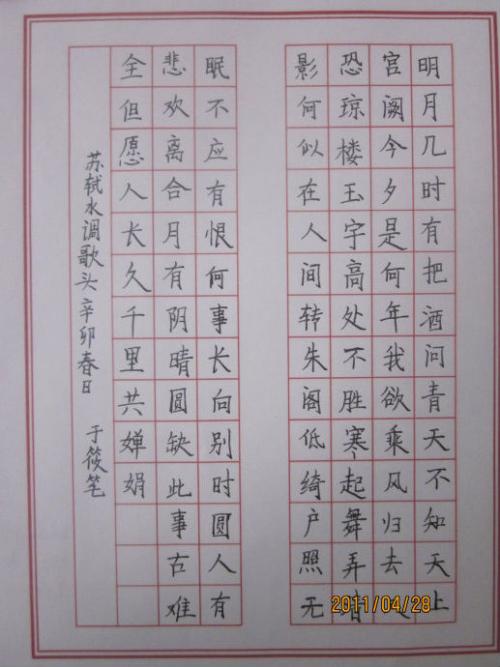 明月几时有把酒问青天不知天上
宫阙今夕是何年我欲乘风归去
恐琼楼玉宇高处不胜寒起舞弄
影何似在人间转朱阁低绮户照无
眠不应有恨何事长向别时圆人有
悲欢离合月有阴晴圆缺此事古难
全但愿人长久千里共婵娟
苏轼水调歌头辛卯春日 于筱笔
2011/04/28